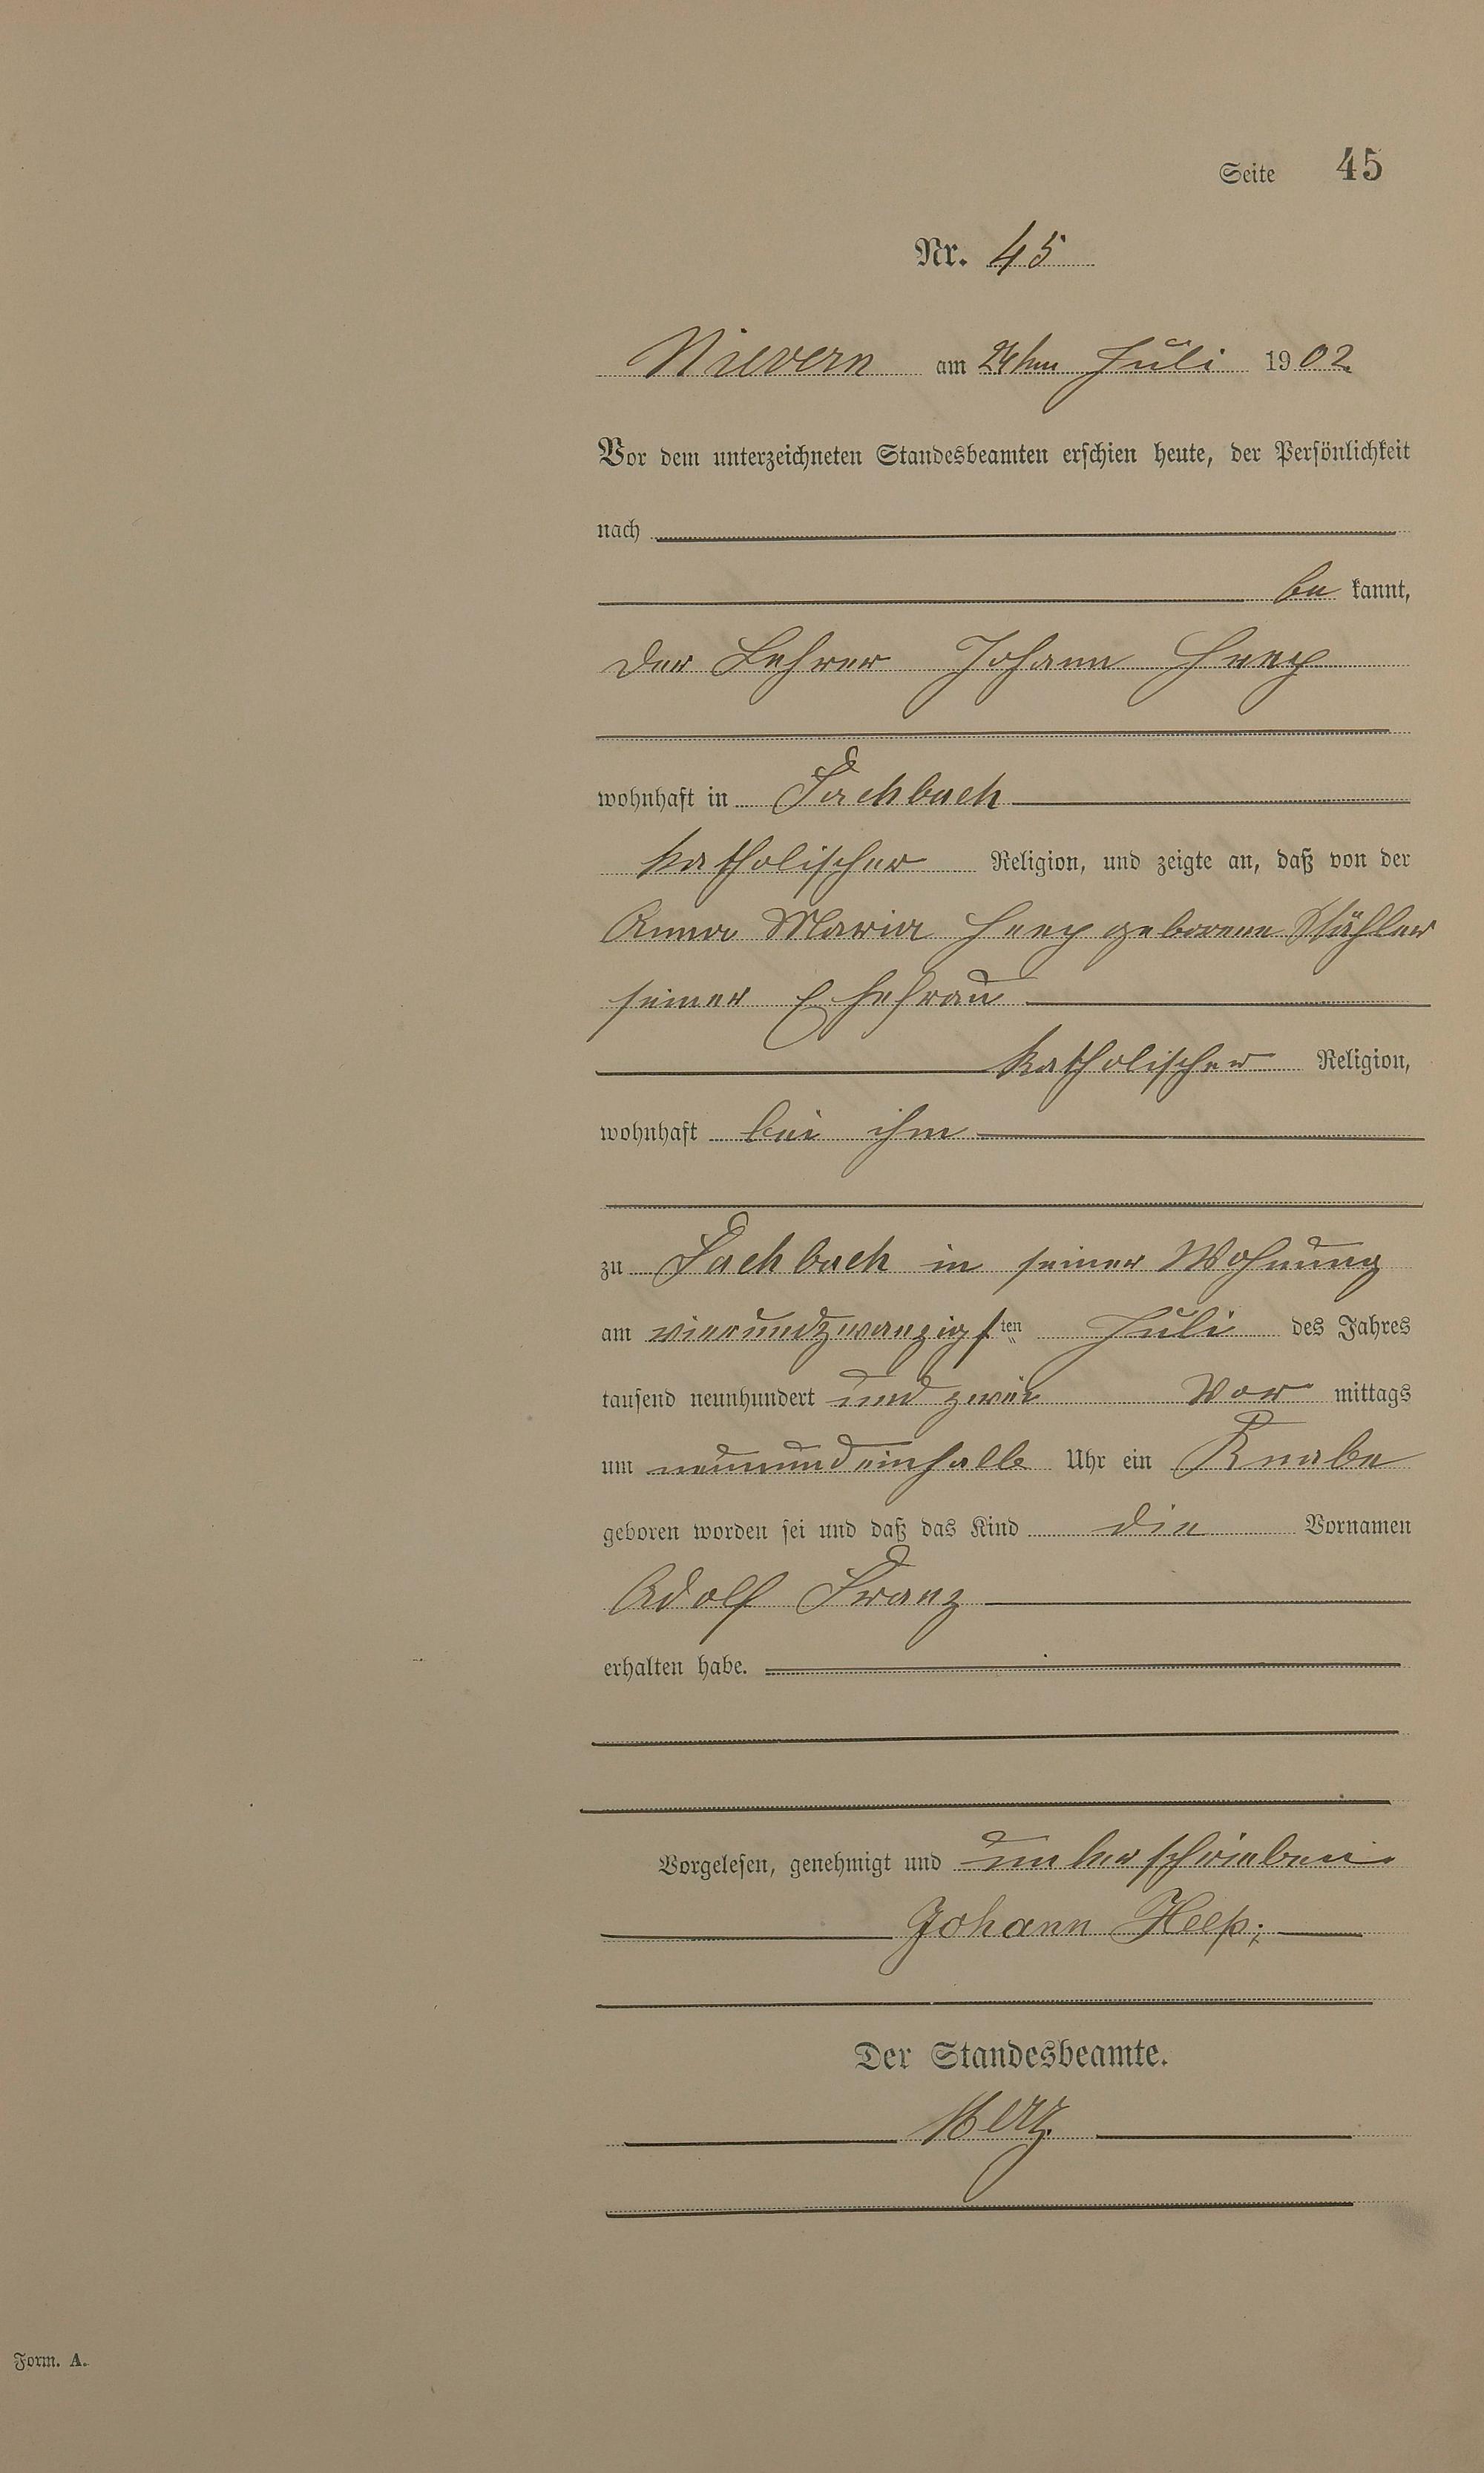 Seite 45
Nr. 45
Nievern am 24ten Juli 1902.
Vor dem unterzeichneten Standesbeamten erschien heute, der Persönlichkeit
nach
be kannt,
der Lehrer Johann Heep
wohnhaft in Fachbach
katholischer Religion, und zeigte an, daß von der
Anna Maria Heep geborene Stähler
seiner Ehefrau
katholischer Religion,
wohnhaft bei ihm
zu Fachbach in seiner Wohnung
am vierundzwanzigsten Juli des Jahres
tausend neunhundert und zwei Vor mittags
um neunundeinhalb Uhr ein Knabe
geboren worden sei und daß das Kind die Vornamen
Adolf Franz
erhalten habe.
Vorgelesen, genehmigt und unterschrieben.
Johann Heep;
Der Standesbeamte.
Form. A.